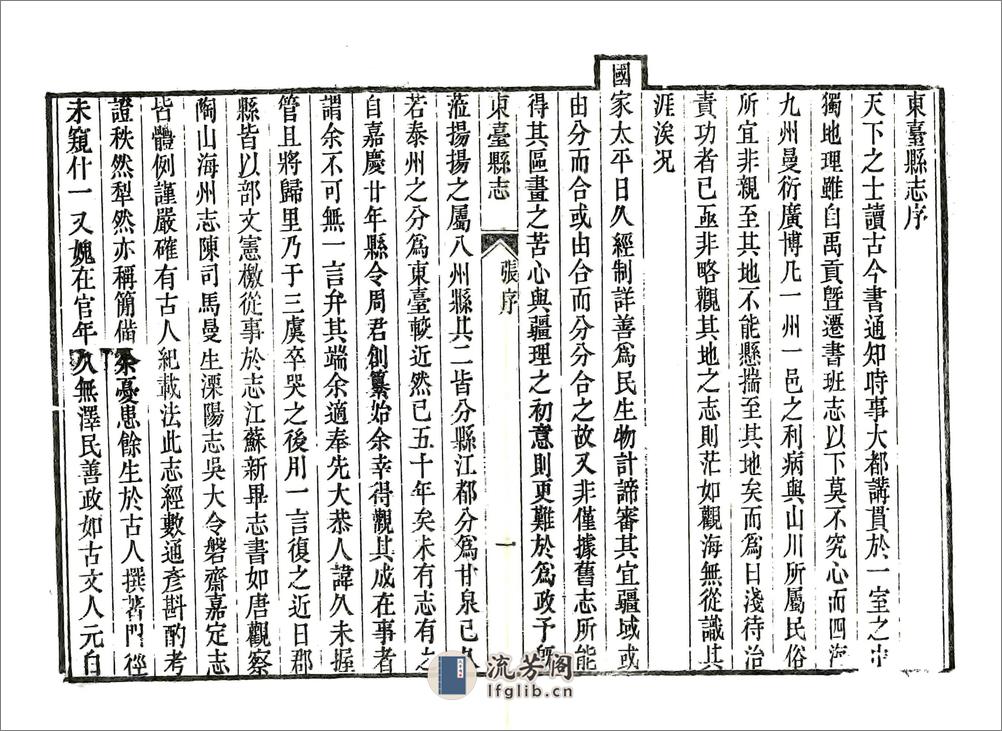 東臺縣志序
天下之士讀古今書通知時事大都講貫於一室之中
獨地理雖自禹貢曁遷書班志以下莫不究心而四海
九州曼衍廣博凡一州一邑之利病與山川所屬民俗
所宜非親至其地不能懸揣至其地矣而爲日淺待治
責功者已亟非略觀其地之志則茫如觀海無從識其
涯涘况
國家太平日久經制詳善爲民生物計諦審其宜疆域或
由分而合或由合而分分合之故又非僅據舊志所能
得其區畫之苦心與疆理之初意則更難於爲政予
東臺縣志 張序 一
蒞揚揚之屬八州縣其二皆分縣江都分爲甘泉已久
若泰州之分爲東臺較近然已五十年矣未有志有之
自嘉慶廿年縣令周君創纂始余幸得觀其成在事者
謂余不可無一言弁其端余適奉先大恭人諱久未握
管且將歸里乃于三虞卒哭之後用一言復之近日郡
縣皆以部文憲檄從事於志江蘇新畢志書如唐觀察
陶山海州志陳司馬曼生溧陽志吳大令磐齋嘉定志
皆體例謹嚴確有古人紀載法此志經數通彥斟酌考
證秩然犁然亦稱簡備余憂患餘生於古人撰著門徑
未窺什一又媿在官年久無澤民善政如古文人元白
流芳閣
lfglib.cn